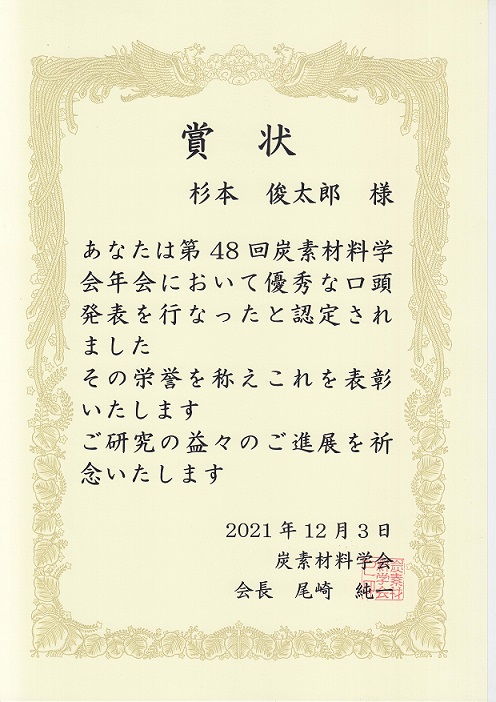 賞 状
杉本 俊太郎 様
あなたは第 48 回炭素材料学
会年会において優秀な口頭
発表を行なったと認定され
ました
その栄誉を称えこれを表彰
いたします
ご研究の益々のご進展を祈
念いたします
2021 年 12 月 3 日
炭素材料学会
会長 尾崎 純一